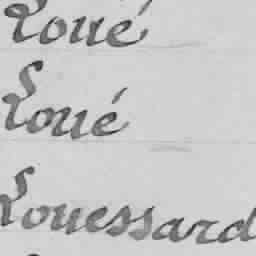 Loué
Loué
Louessard